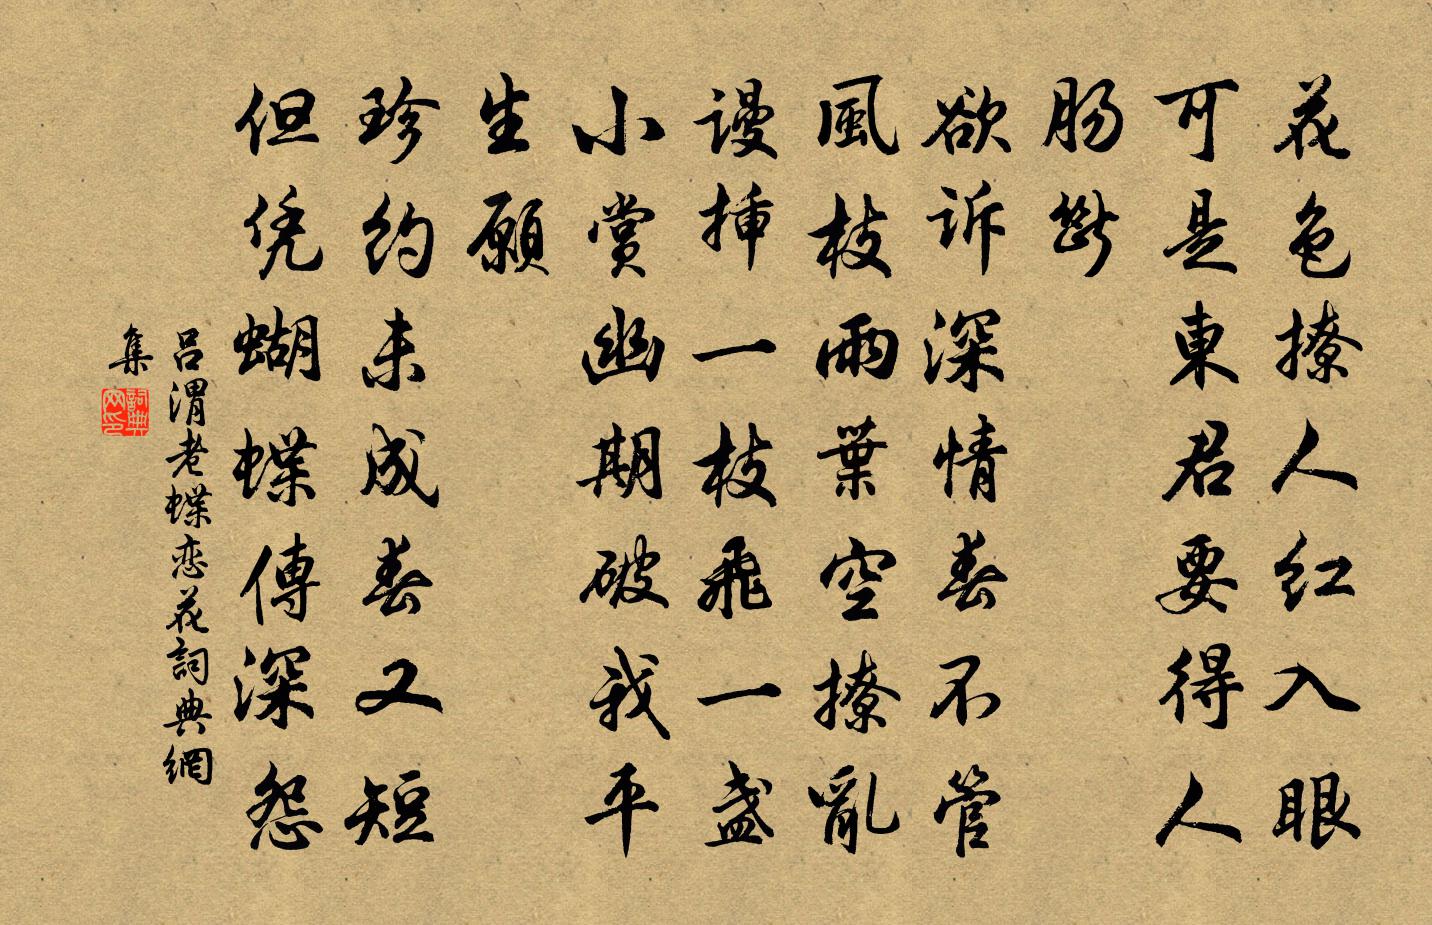 花色撩人红入眼
可是東君要得人
肠斷
欲诉深情春不管
風枝雨葉空撩亂
謾插一枝飛一盏
小赏幽期破我平
生願
珍约未成春又短
但凭蝴蝶傳深怨
吕渭老蝶恋花詞典網
集
詞典
网印